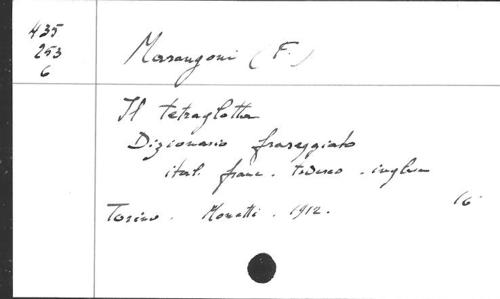 435
253
6
Marangoni (F.)
Il tetraglotta
Dizionario fraseggiato
ital. franc. tedesco. inglese
Torino. Monetti. 1912. 16